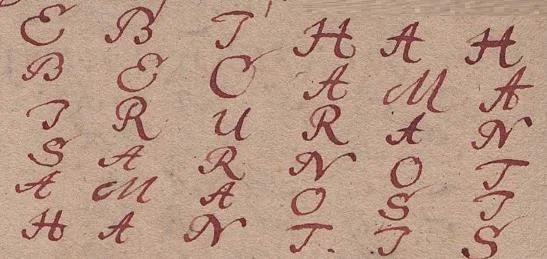 E B T H A H
B E C A M A
T R U R A N
S A R N O T
A M A O S T
H A N T. T S